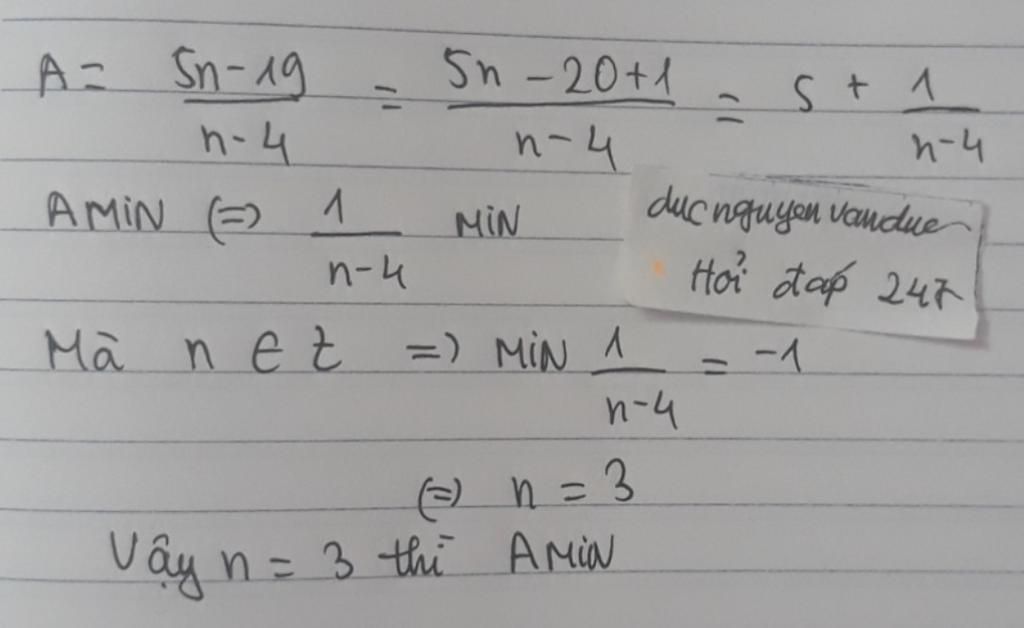 A = 5n-19/n-4 = 5n-20+1/n-4 = 5 + 1/n-4
AMIN (=) 1/n-4 MIN
ducnguyenvanduc
Hỏi đáp 247
Mà n ∈ Z => MIN 1/n-4 = -1
(=) n = 3
Vậy n = 3 thì AMIN